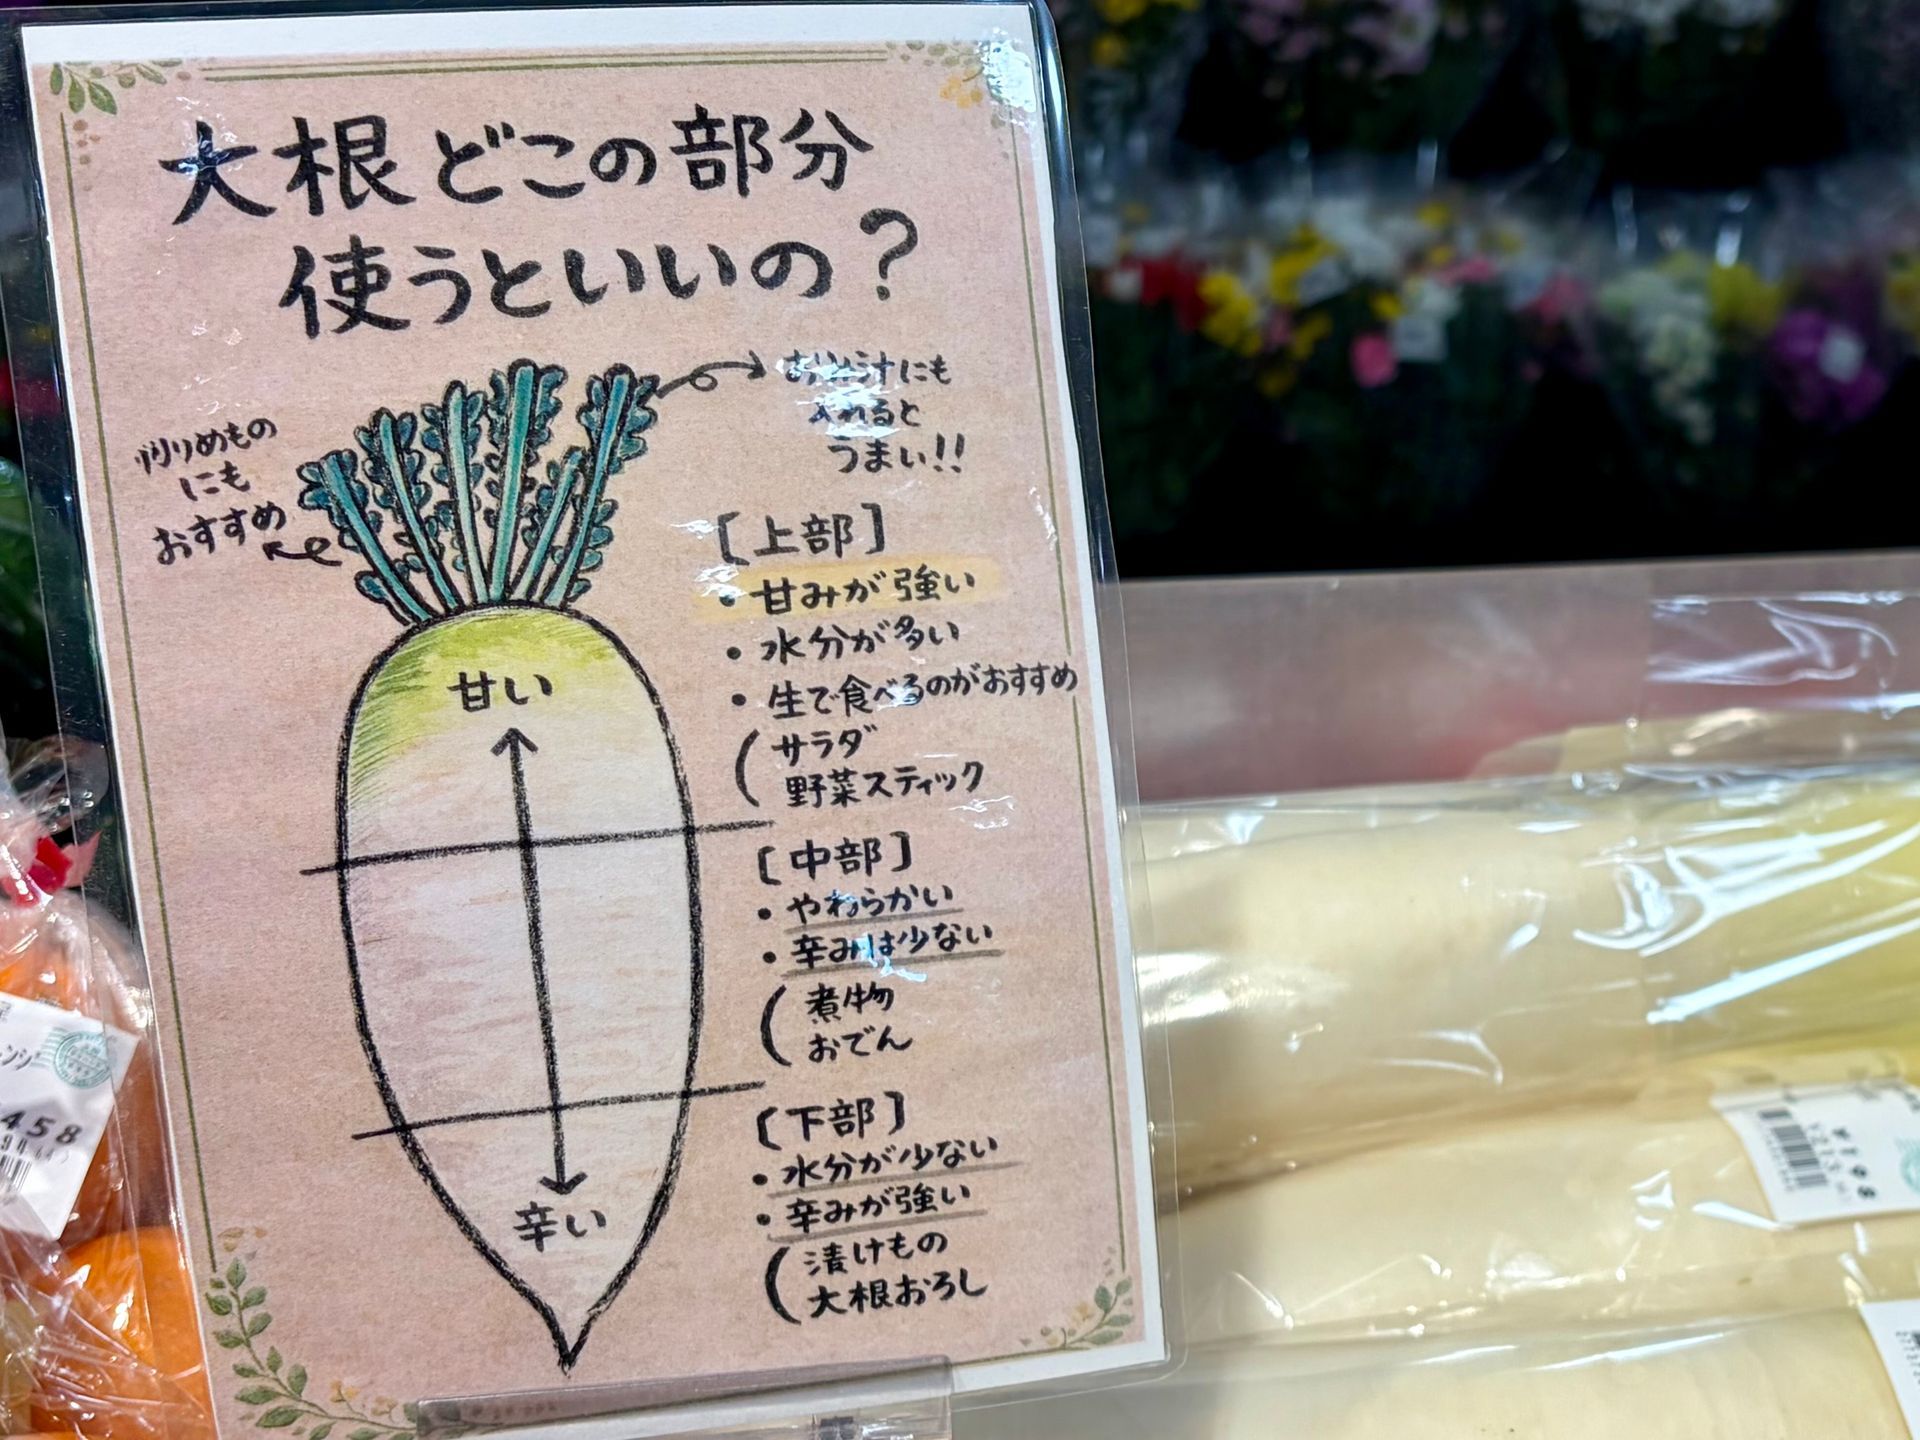 大根どこの部分
使うといいの？
おみそ汁にも
入れると
うまい!!
炒りめもの
にも
おすすめ
[上部]
・甘みが強い
・水分が多い
・生で食べるのがおすすめ
サラダ
野菜スティック
甘い
[中部]
・やわらかい
・辛みは少ない
煮物
おでん
[下部]
・水分が少ない
・辛みが強い
漬けもの
大根おろし
辛い
458
¥198